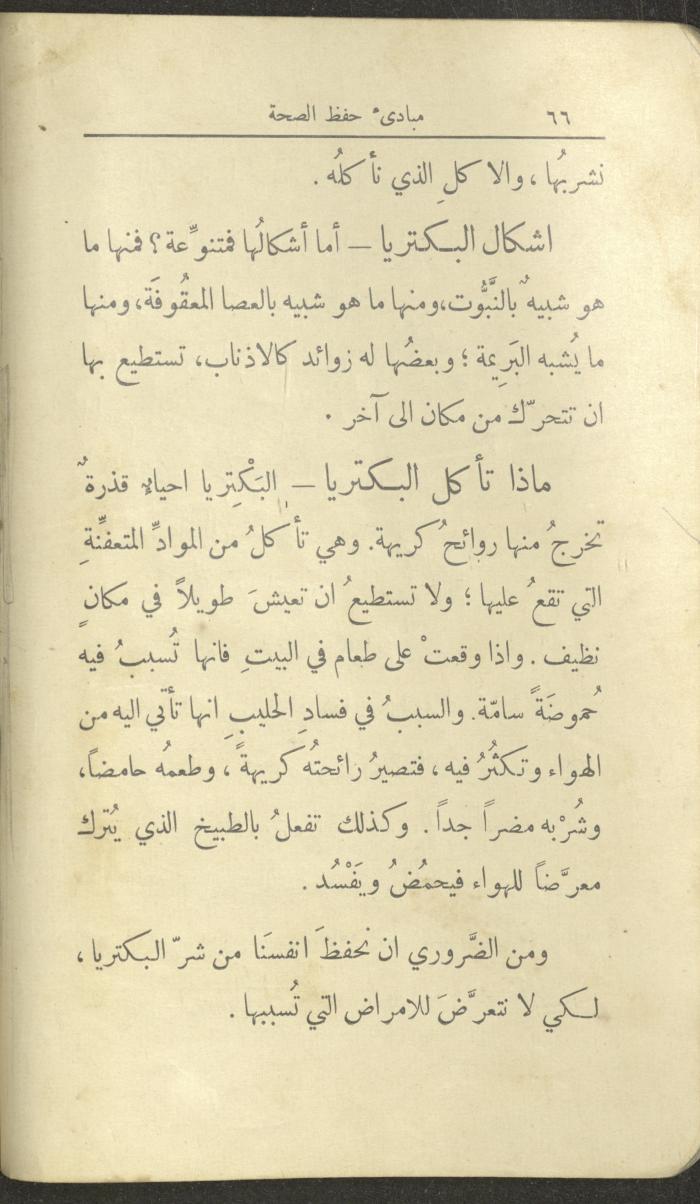 ٦٦ مبادىء حفظ الصحة
نشربُها ، والاكلِ الذي نأكلُه .
اشكال البكتريا — أما أشكالُها فمتنوّعة ؟ فمنها ما
هو شبيهٌ بالنَّبُّوت، ومنها ما هو شبيه بالعصا المعقُوفَة، ومنها
ما يُشبه البَرِيمة ؛ وبعضُها له زوائد كالاذناب، تستطيع بها
ان تتحرّك من مكان الى آخر .
ماذا تأكل البكتريا — البَكْتِريا احياءٌ قذرةٌ
تخرجُ منها روائحُ كريهة. وهي تأكلُ من الموادِّ المتعفنَّةِ
التي تقعُ عليها ؛ ولا تستطيعُ ان تعيشَ طويلاً في مكانٍ
نظيف . واذا وقعتْ على طعام في البيتِ فانها تُسببُ فيه
حُموضَةً سامّة. والسببُ في فسادِ الحليبِ انها تأتي اليه من
الهواء وتكثُرُ فيه ، فتصيرُ رائحتُه كريهةً ، وطعمُه حامضاً،
وشُرْبه مضراً جداً . وكذلك تفعلُ بالطبيخ الذي يُترك
معرَّضاً للهواء فيحمُضُ ويَفْسُد .
ومن الضَّروري ان نحفظَ انفسنَا من شرّ البكتريا ،
لكي لا نتعرَّضَ للامراض التي تُسببها .